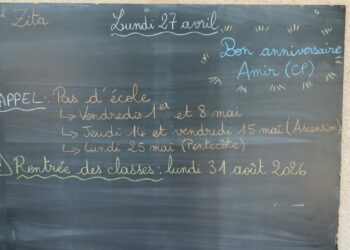 Zita
Lundi 27 avril
Bon anniversaire
Amir (CP)
APPEL: Pas d'école
↳ Vendredis 1er et 8 mai
↳ Jeudi 14 et vendredi 15 mai (Ascension)
↳ Lundi 25 mai (Pentecôte)
Rentrée des classes: lundi 31 août 2026